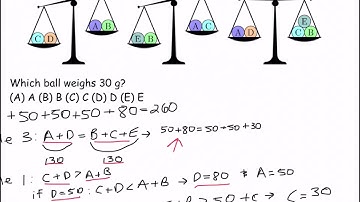 C D A B E B A C A D E C B
Which ball weighs 30 g?
(A) A (B) B (C) C (D) D (E) E
+50+50+50+80=260
e 3: A+D = B+C+E → 50+80=50+50+30
130 130
e 1: C+D > A+B → D=80 & A=50
if D=50: C+D < A+B
> 50+C → C=30